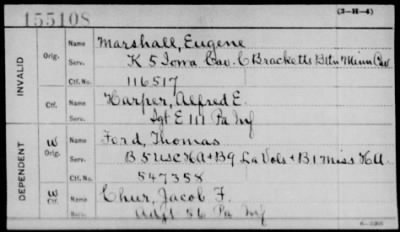 155108
(3-H-4)
INVALID
Orig.
Name Marshall, Eugene
Serv. K 5 Iowa Cav. C Bracketts Bttn Minn Cav
Ctf. No. 116517
Ctf.
Name Harper, Alfred E.
Serv. Sgt E 111 Pa Inf
DEPENDENT
W
Orig.
Name Ford, Thomas
Serv. B 5 USC HA + B9 La Vols + B 1 Miss HA
Ctf. No. 547358
W
Ctf.
Name Chur, Jacob F.
Serv. Adjt 56 Pa Inf